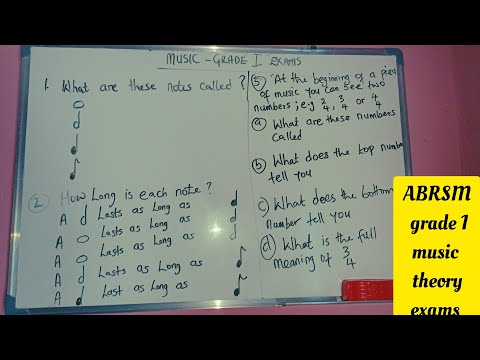 MUSIC - GRADE I EXAMS
1. What are these notes called?
2 How Long is each note?
A Lasts as Long as
A Lasts as Long as
A Lasts as Long as
A Lasts as Long as
A Last as Long as
5) At the beginning of a
of music you can see two
numbers; e.g 2/4, 3/4 or 4/4
a) What are these numbers
called
b) What does the top
tell you
c) What does the
Number tell you
d) What is the full
meaning of 3/4
ABRSM
grade 1
music
theory
exams